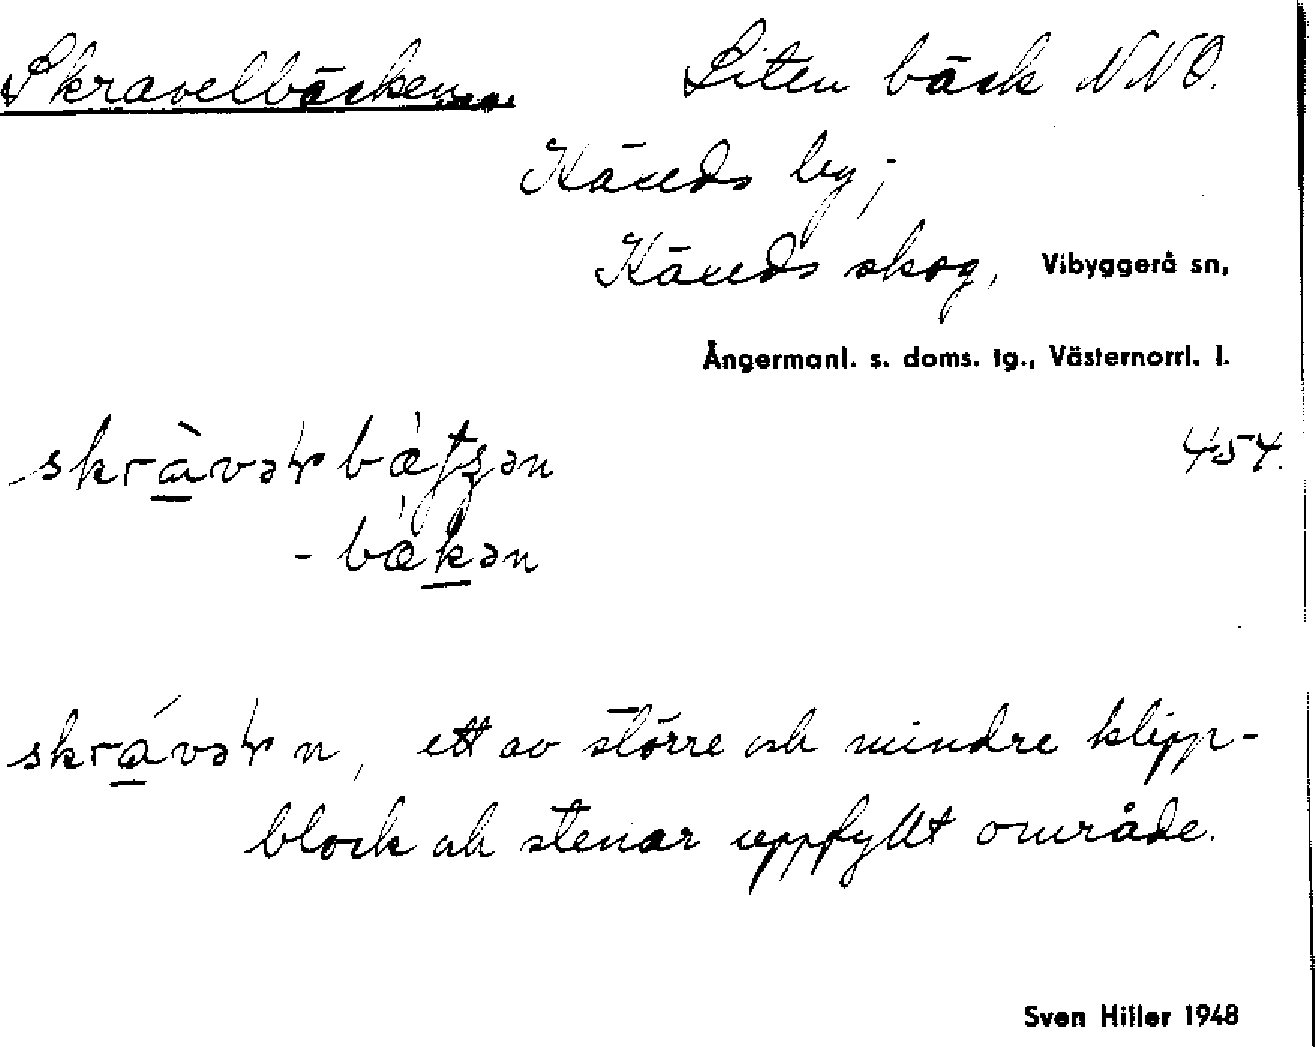 Skravelbäcken Liten bäck NNO.
Käxeds by;
Käxeds skog, Vibyggerå sn,
Ångermanl. s. doms. tg., Västernorrl. l.
454.
- bækən
n, ett av större och mindre klipp-
block och stenar uppfyllt område.
Sven Hiller 1948